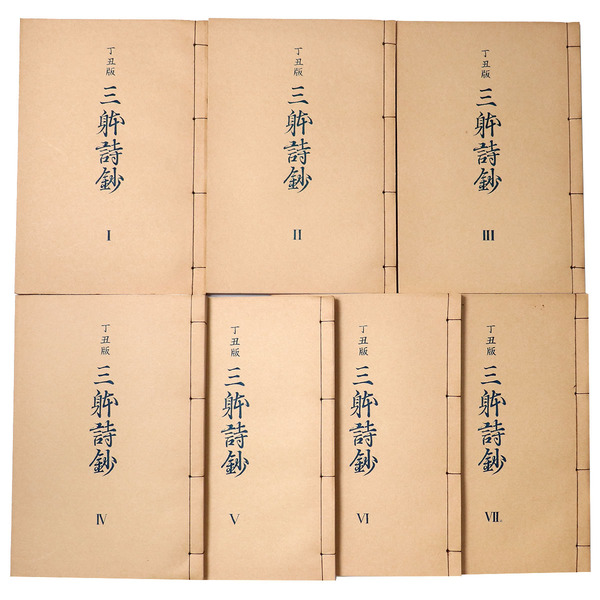 丁丑版
三躰詩鈔
I
丁丑版
三躰詩鈔
II
丁丑版
三躰詩鈔
III
丁丑版
三躰詩鈔
IV
丁丑版
三躰詩鈔
V
丁丑版
三躰詩鈔
VI
丁丑版
三躰詩鈔
VII